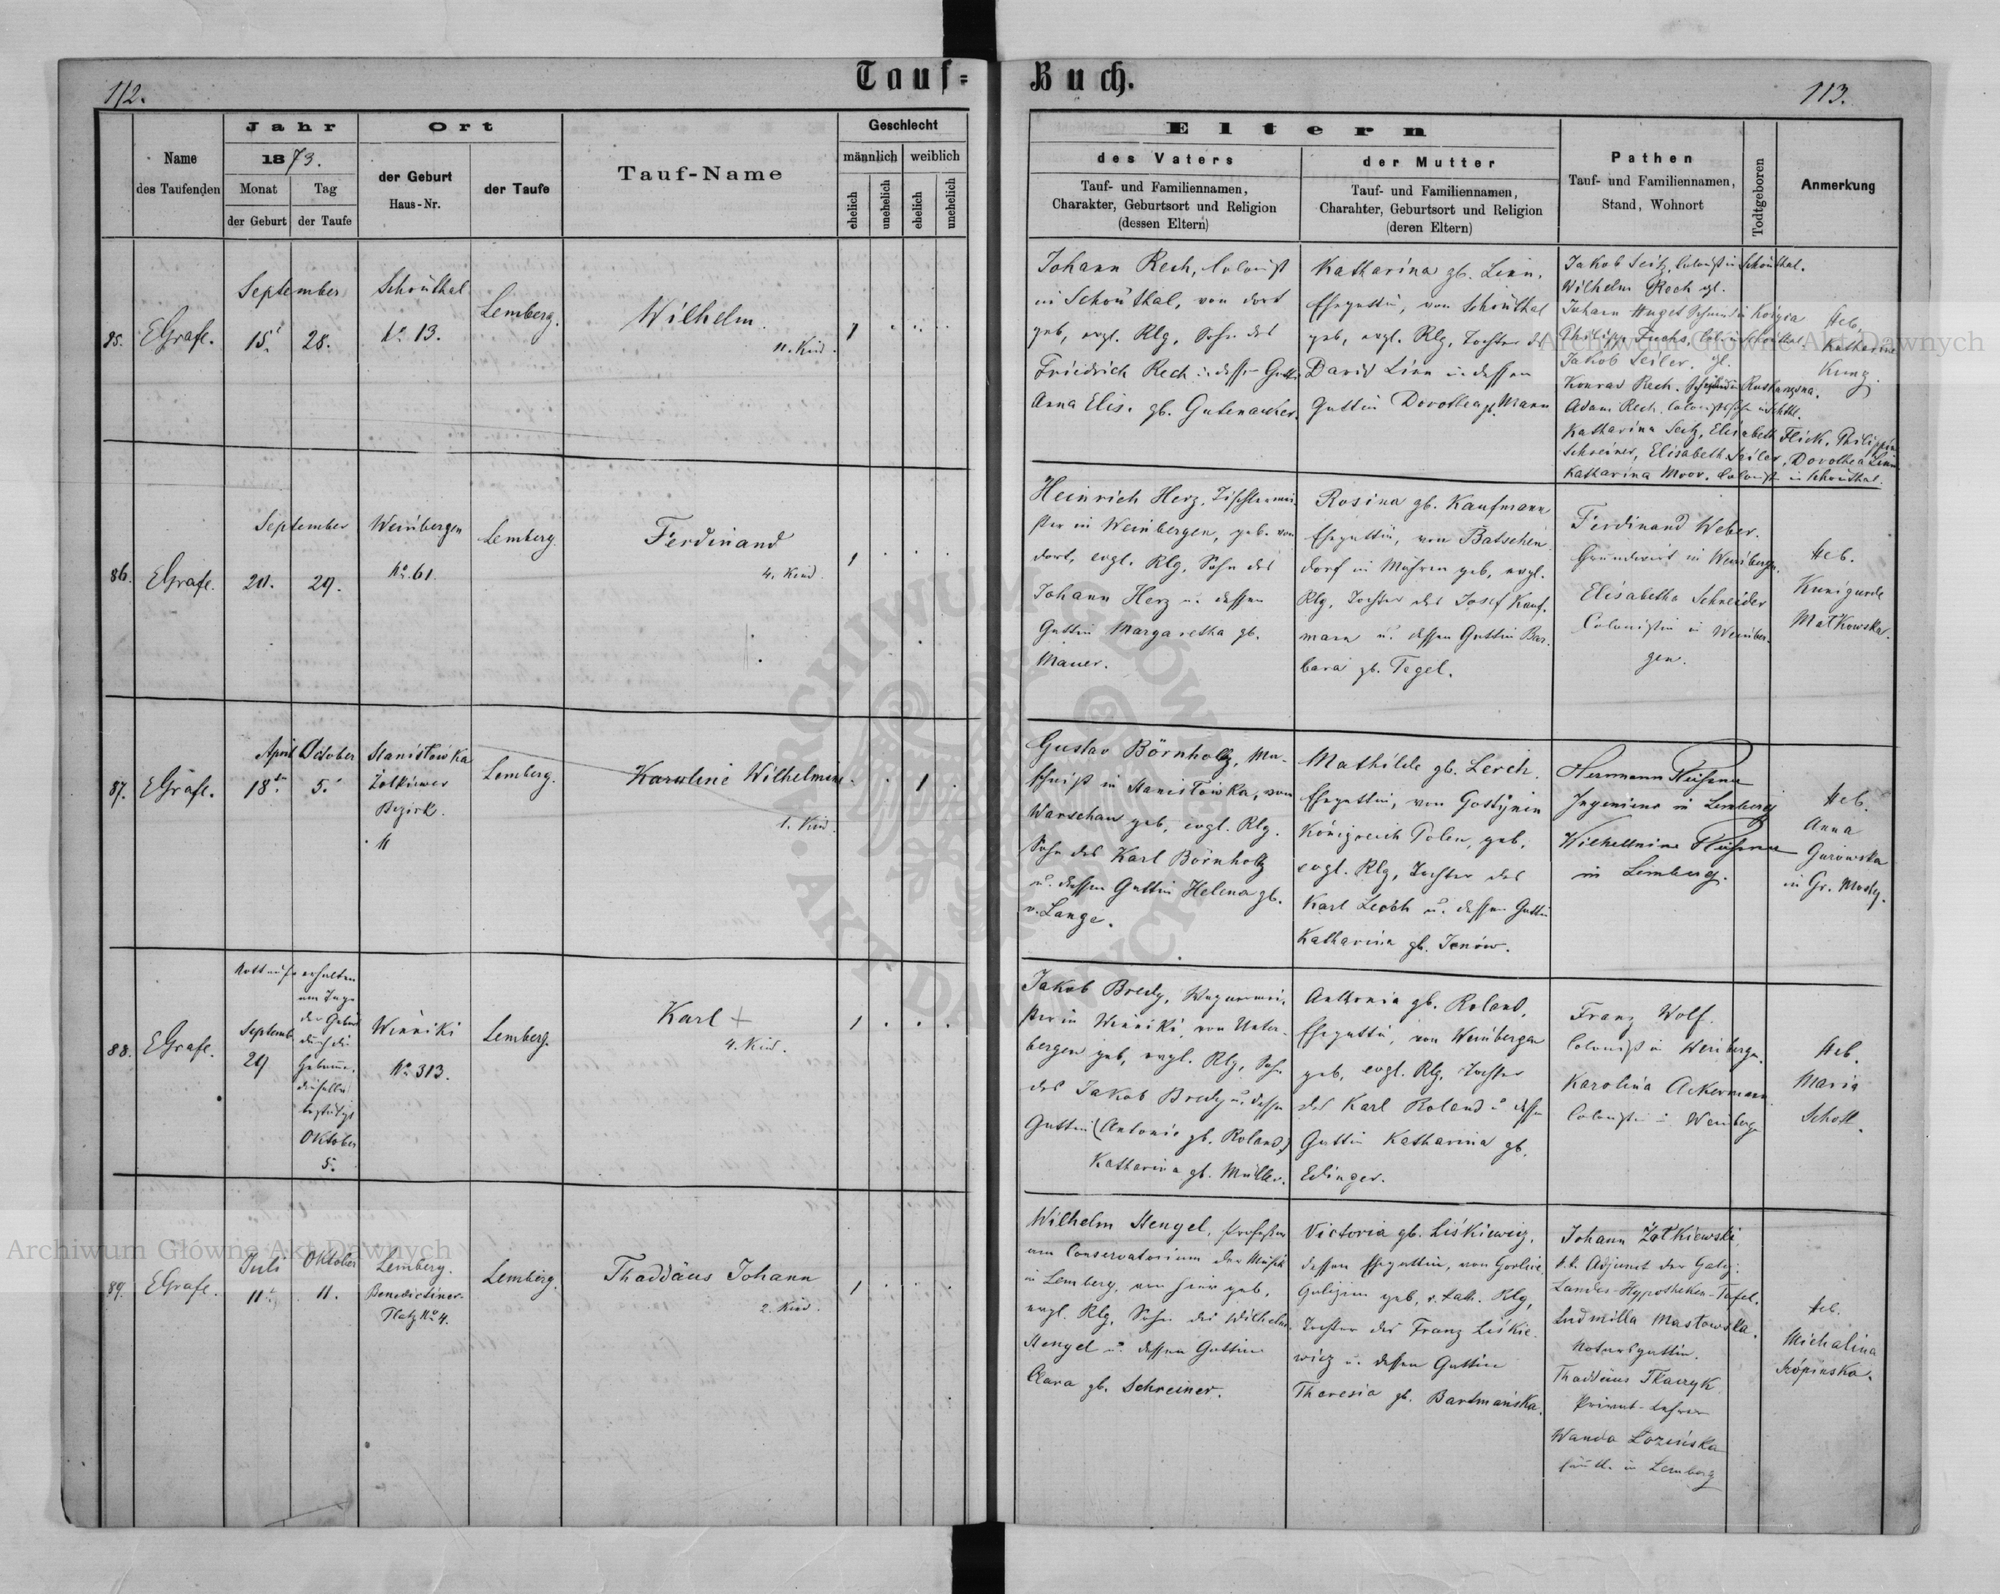 112.
Tauf-
Buch.
113.
Name
des Taufenden
Jahr
1873.
Monat
der Geburt
Tag
der Taufe
Ort
der Geburt
Haus-Nr.
der Taufe
Tauf-Name
Geschlecht
männlich
weiblich
ehelich
unehelich
ehelich
unehelich
Eltern
des Vaters
Tauf- und Familiennamen,
Charakter, Geburtsort und Religion
(dessen Eltern)
der Mutter
Tauf- und Familiennamen,
Charahter, Geburtsort und Religion
(deren Eltern)
Pathen
Tauf- und Familiennamen,
Stand, Wohnort
Todtgeboren
Anmerkung
85.
EGrafe.
September
15t
28.
Schönthal
No 13.
Lemberg.
Wilhelm.
11. Kind.
1
Johann Rech, Colonist
in Schönthal, von dort
geb, evgl. Rlg, Sohn des
Friedrich Rech u dessen Gattin
Anna Elis. gb. Gutenacher.
Katharina gb. Linn,
Ehegattin, von Schönthal
geb, evgl. Rlg, Tochter des
David Linn u dessen
Gattin Dorothea gb. Mann
Jakob Seitz, Colonist in Schönthal.
Wilhelm Rech
Johann Huget
Philipp Fuchs,
Jakob Seiler,
Konrad Rech,
Adam Rech,
Katharina Seitz, Elisabeth Flick, Philippine
Schreiner, Elisabeth Seiler, Dorothea Linn
Katharina Moor, Colonist in Schönthal.
Heb,
Katharine
Kunz.
86.
EGrafe.
September
20.
29.
Weinbergen
No. 61.
Lemberg.
Ferdinand
4. Kind.
1
Heinrich Herz, Tischlermei-
ster in Weinbergen, geb. von
dort, evgl. Rlg, Sohn des
Johann Herz u. dessen
Gattin Margaretha gb.
Mauer.
Rosina gb. Kaufmann,
Ehegattin, von Batschen
dorf in Mähren geb, evgl.
Rlg, Tochter des Josef Kauf-
mann u. dessen Gattin Bar-
bara gb. Tegel.
Ferdinand Weber.
Grundwirt in Weinbergen.
Elisabetha Schneider
Colonistin in Weinber-
gen.
Heb.
Kunigunde
Matkowska.
87.
EGrafe.
April
October
18ten
5.
Stanisłowka
Żołkiewer
Bezirk.
Lemberg.
Karoline Wilhelmine
1. Kind.
1
Gustav Börnholtz, Ma-
schinist in Stanisłowka, von
Warschau geb, evgl. Rlg.
Sohn des Karl Börnholtz
u. dessen Gattin Helena gb.
v. Lange.
Mathilde gb. Lerch.
Ehegattin, von Gostynin
Königreich Polen, geb,
evgl. Rlg, Tochter des
Karl Lerch u. dessen Gattin
Katharina gb. Janow.
Herrmann
Ingenieur in Lemberg
Wilhelmine
in Lemberg.
Heb.
Anna
Gurowska
in Gr. Mosty.
88.
EGrafe.
Nottaufe erhalten
am Tage
der Geburt
durch die
Hebamme,
dieselbe
bestätigt
Oktober
5.
September
29
Winniki
No 313.
Lemberg.
Karl +
4. Kind.
1
Jakob Bredy, Wagnermei-
ster in Winniki, von Unter-
bergen geb, evgl. Rlg, Sohn
des Jakob Bredy u. dessen
Gattin (Antonie gb. Roland)
Katharina gb. Müller.
Anthonia gb. Roland,
Ehegattin, von Weinbergen
geb, evgl. Rlg, Tochter
des Karl Roland u dessen
Gattin Katharina gb.
Edinger.
Franz Wolf.
Colonist in Weinbergen.
Karolina Ackermann,
Colonistin in Weinbergen
Heb.
Maria
Schott.
89.
EGrafe.
Juli
Oktober
11t
11.
Lemberg.
Benedictiner-
Platz No 4.
Lemberg.
Thaddäus Johann
2. Kind.
1
Wilhelm Stengel, Professor
am Conservatorium der Musik
in Lemberg, von hier geb,
evgl. Rlg, Sohn des Wilhelm
Stengel u. dessen Gattin
Clara gb. Schreiner.
Victoria gb. Liśkiewicz,
dessen Ehegattin, von Gorlice
Galizien geb, r. kath. Rlg,
Tochter des Franz Liśkie-
wicz u. dessen Gattin
Theresia gb. Bartmańska.
Johann Żołkiewski,
k.k. Adjunct der Galiz.
Landes-Hypotheken-Tafel.
Ludmilla Masłowska,
Notarsgattin.
Thaddäus Tkaczyk
Privat-Lehrer
Wanda Łozińska
sämtl. in Lemberg
Heb.
Michalina
Szópinska.
Archiwum Główne Akt Dawnych
Archiwum Główne Akt Dawnych
ARCHIWUM GŁÓWNE
AKT DAWNYCH